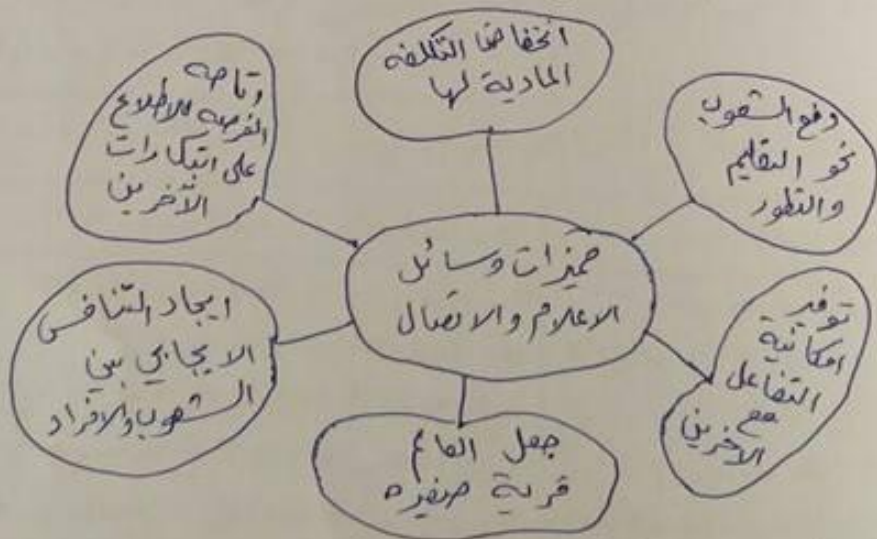 مميزات وسائل
الاعلام والاتصال
انخفاض التكلفه
المادية لها
دفع الشعوب
نحو التقليم
والتطور
توفير
امكانية
التفاعل
مع
الاخرين
جعل العالم
قرية صغيره
ايجاد التنافس
الايجابي بين
الشعوب والافراد
وتاحه
الفرصه للاطلاع
على ابتكارات
الآخرين